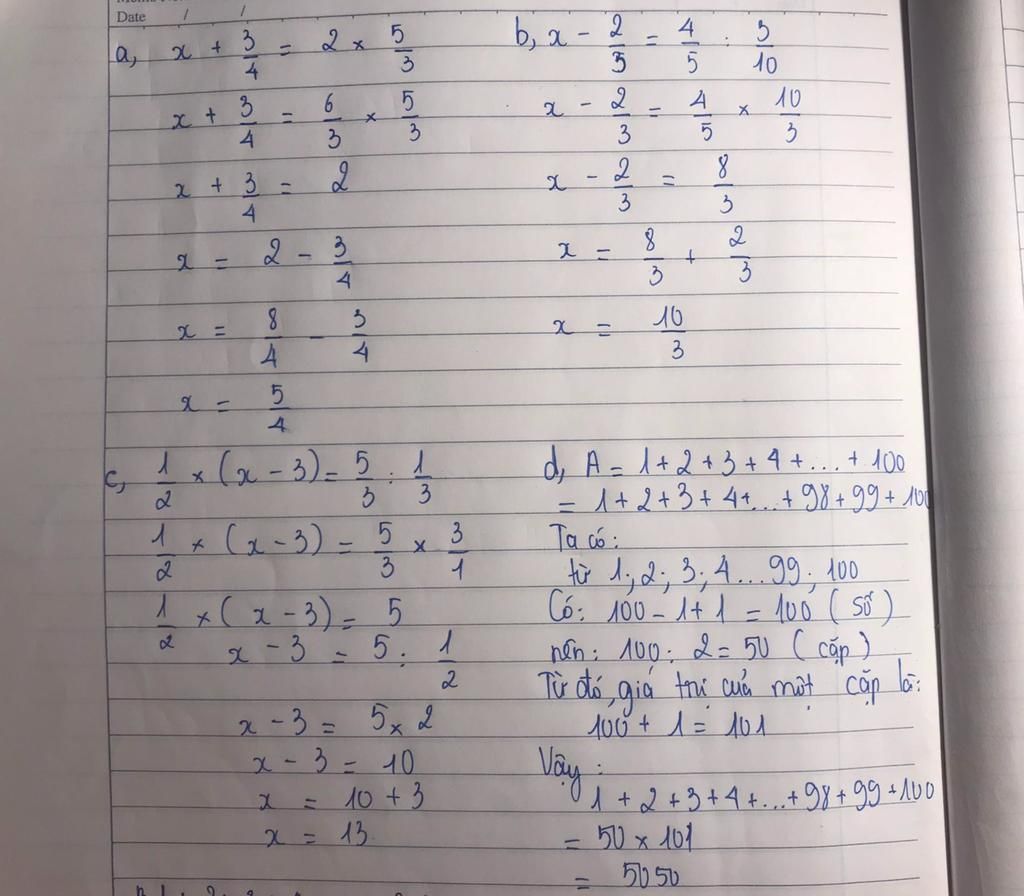 Date / /
a, x + 3/4 = 2 × 5/3
x + 3/4 = 6/3 × 5/3
x + 3/4 = 2
x = 2 - 3/4
x = 8/4 - 3/4
x = 5/4
b, x - 2/3 = 4/5 : 3/10
x - 2/3 = 4/5 × 10/3
x - 2/3 = 8/3
x = 8/3 + 2/3
x = 10/3
c, 1/2 × (x - 3) = 5/3 : 1/3
1/2 × (x - 3) = 5/3 × 3/1
1/2 × (x - 3) = 5
x - 3 = 5 : 1/2
x - 3 = 5 × 2
x - 3 = 10
x = 10 + 3
x = 13
d, A = 1 + 2 + 3 + 4 + ... + 100
= 1 + 2 + 3 + 4 + ... + 98 + 99 + 100
Ta có:
từ 1; 2; 3; 4 ... 99; 100
Có: 100 - 1 + 1 = 100 (số)
nên: 100 : 2 = 50 (cặp)
Từ đó, giá trị của một cặp là:
100 + 1 = 101
Vậy:
1 + 2 + 3 + 4 + ... + 98 + 99 + 100
= 50 × 101
= 5050